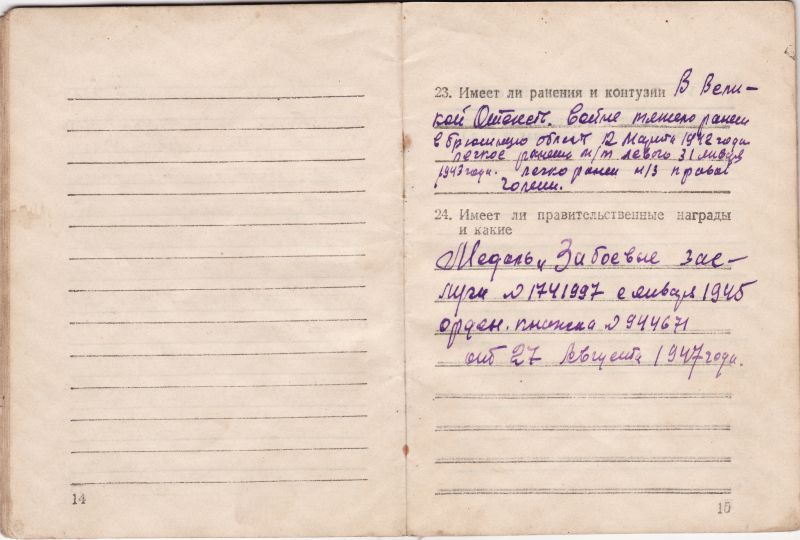 23. Имеет ли ранения и контузии В Вели-
кой Отечест. войне тяжело ранен
в брюшную област 12 Марта 1942 года
легкое ранение м/т левого 31 января
1943 года. легко ранен н/з правой
голени.
24. Имеет ли правительственные награды
и какие
Медаль „За боевые зас-
луги № 1741997 с января 1945
орден. книжка № 944671
от 27 Августа 1947 года.
14
15